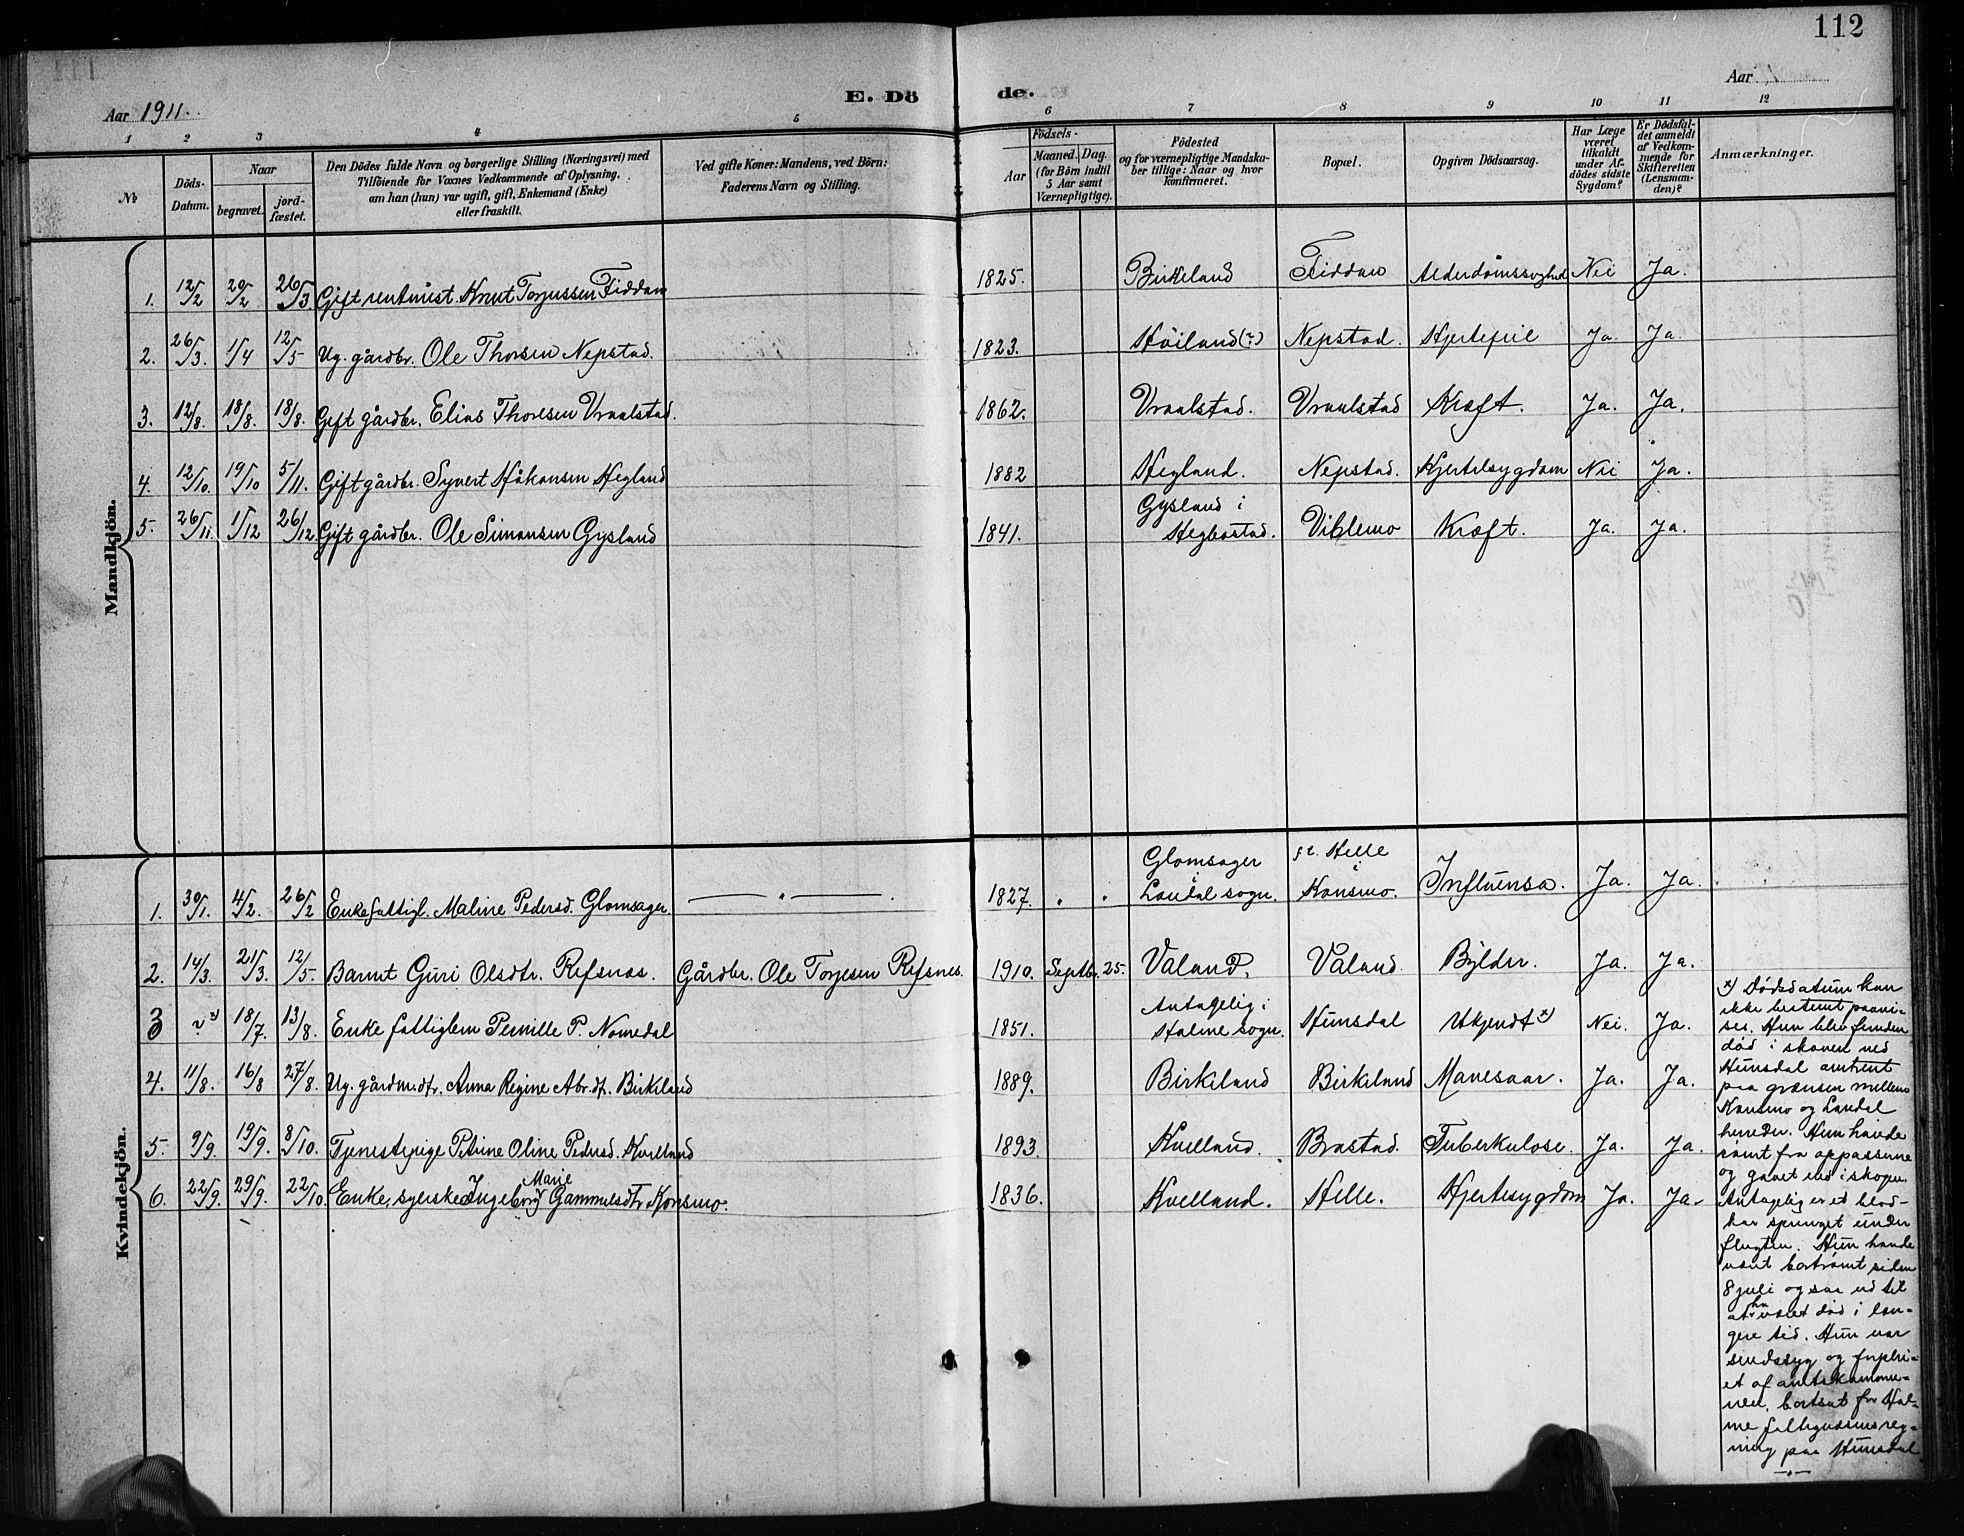 112
Aar 1911.
E. Dö de.
Aar
1 2 3 4 5 6 7 8 9 10 11 12
No
Döds-Datum.
Naar
begravet.
jord-fæstet.
Den Dödes fulde Navn og borgerlige Stilling (Næringsvei) med
Tilföiende for Voxnes Vedkommende af Oplysning,
om han (hun) var ugift, gift, Enkemand (Enke)
eller fraskilt.
Ved gifte Koner: Mandens, ved Börn:
Faderens Navn og Stilling.
Födsels-
Aar
Maaned. Dag.
(for Börn indtil
5 Aar samt
Værnepligtige).
Födested
og for værnepligtige Mandska-
ber tillige: Naar og hvor
konfirmeret.
Bopæl.
Opgiven Dödsaarsag.
Har Læge
været
tilkaldt
under Af-
dödes sidste
Sygdom?
Er Dödsfal-
det anmeldt
af Vedkom-
mende for
Skifteretten
(Lensman-
den)?
Anmærkninger.
Mandkjön.
1. 12/2 20/2 26/3 Gift rentnist Knut Torjussen Fiddan 1825. Birkeland Fiddan Alderdomssvaghed Nei Ja.
2. 26/3. 1/4 12/5 Ug. gårdbr. Ole Thorsen Nepstad. 1823. Höiland (?) Nepstad. Hjertefeil Ja. Ja.
3. 12/8. 18/8 18/8. Gift gårdbr. Elias Thoresen Vraalstad. 1862. Vraalstad. Vraalstad Kræft. Ja. Ja.
4. 12/10. 19/10 5/11. Gift gårdbr. Syvert Håkonsen Hegland 1882 Hegland. Nepstad. Hjertesygdom Nei Ja.
5. 26/11. 1/12 26/12 Gift gårdbr. Ole Simonsen Gysland 1841. Gysland i Hegbostad. Viblemo Kræft. Ja. Ja.
Kvindekjön.
1. 30/1. 4/2. 26/2 Enke fattigl. Maline Pedersd. Glomsager. — " — 1827. Glomsager i Laudal sogn. p.t. Helle i Konsmo. Influensa. Ja. Ja.
2. 14/3. 21/3. 12/5. Barnet Guri Olsdtr. Refsnæs. Gårdbr. Ole Torjesen Refsnes. 1910. Septbr. 25. Valand. Valand. Bylder. Ja. Ja.
3 ? x) 18/7. 13/8. Enke fattiglem Pernille P. Nomedal 1851. Antagelig i Halme sogn. Hunsdal Ukjendt x) Nei. Ja.
4. 11/8. 16/8 27/8. Ug. gårdm. dtr. Anna Regine Abr. dt. Birkeland 1889. Birkeland Birkeland Mavesaar. Ja. Ja.
5. 9/9. 19/9. 8/10. Tjenestepige Petrine Oline Pedersd. Kvelland 1893. Kvelland. Brastad. Tuberkulose. Ja. Ja.
6. 22/9. 29/9. 22/10. Enke, syerske Ingeborg Marie Gammelsdtr. Konsmo. 1836. Kvelland. Helle. Hjertesygdom Ja. Ja.
x) Dödsdatum kan
ikke bestemt paavi-
ses. Hun blev funden
död i skoven ved
Hunsdal omtrent
paa grænsen mellem
Konsmo og Laudal
herreder. Hun havde
römt fra oppasserne
og gaaet ud i skogen.
Antagelig er et blod-
kar sprunget under
flugten. Hun havde
været bortrömt siden
8 juli og saa ud til
at ha været död i læn-
gere tid. Hun var
sindssyg og forplei-
et af amtskommu-
nen, bortsat for Hal-
me fattigvæsens reg-
ning paa Hunsdal